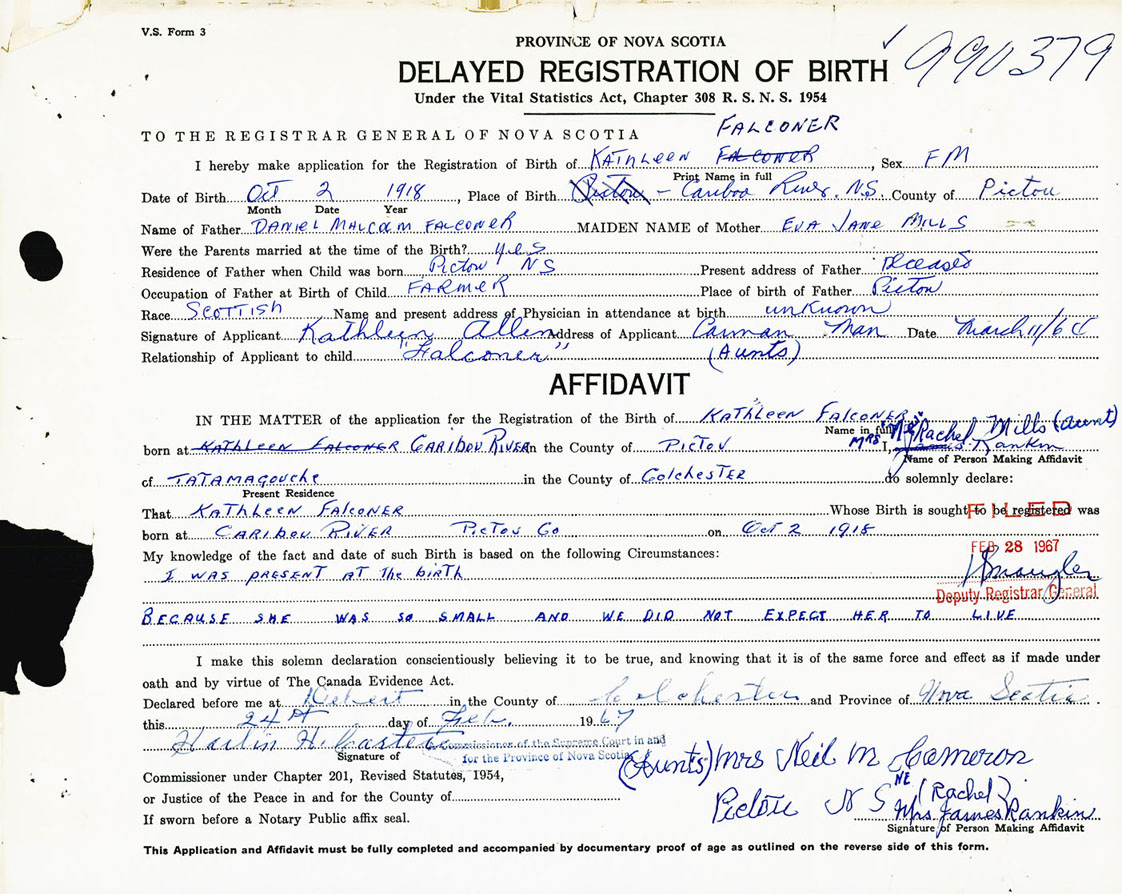 V.S. Form 3
PROVINCE OF NOVA SCOTIA
✓ 990379
DELAYED REGISTRATION OF BIRTH
Under the Vital Statistics Act, Chapter 308 R. S. N. S. 1954
TO THE REGISTRAR GENERAL OF NOVA SCOTIA
FALCONER
I hereby make application for the Registration of Birth of KATHLEEN FALCONER, Sex FM
Print Name in full
Date of Birth Oct 2 1918, Place of Birth Pictou - Cariboo River. N.S. County of Pictou
Month Date Year
Name of Father DANIEL MALCOLM FALCONER MAIDEN NAME of Mother EVA JANE MILLS
Were the Parents married at the time of the Birth? yes
Residence of Father when Child was born Pictou NS Present address of Father Deceased
Occupation of Father at Birth of Child FARMER Place of birth of Father Pictou
Race SCOTTISH Name and present address of Physician in attendance at birth unknown
Signature of Applicant Kathleen Allen Address of Applicant Carman Man Date March 11/6
Relationship of Applicant to child "Falconer" (Aunts)
AFFIDAVIT
IN THE MATTER of the application for the Registration of the Birth of KATHLEEN FALCONER
Name in full
MRS Rachel Mills (aunt)
born at KATHLEEN FALCONER CARIBOU RIVER in the County of PICTOU I, James Rankin
Name of Person Making Affidavit
of TATAMAGOUCHE in the County of COLCHESTER do solemnly declare:
Present Residence
That KATHLEEN FALCONER Whose Birth is sought to be registered was
FILED
born at CARIBOU RIVER PICTOU Co on Oct 2 1918
My knowledge of the fact and date of such Birth is based on the following Circumstances:
FEB 28 1967
I WAS PRESENT AT The birth
Deputy Registrar General
BECAUSE SHE WAS SO SMALL AND WE DID NOT EXPECT HER TO LIVE
I make this solemn declaration conscientiously believing it to be true, and knowing that it is of the same force and effect as if made under
oath and by virtue of The Canada Evidence Act.
Declared before me at Debert in the County of Colchester and Province of Nova Scotia.
this 24th day of Feb. 1967
A Commissioner of the Supreme Court in and
for the Province of Nova Scotia
Signature of
(Aunts) Mrs Neil M Cameron
Commissioner under Chapter 201, Revised Statutes, 1954,
or Justice of the Peace in and for the County of
Pictou NS NE (Rachel)
Mrs. James Rankin
If sworn before a Notary Public affix seal.
Signature of Person Making Affidavit
This Application and Affidavit must be fully completed and accompanied by documentary proof of age as outlined on the reverse side of this form.